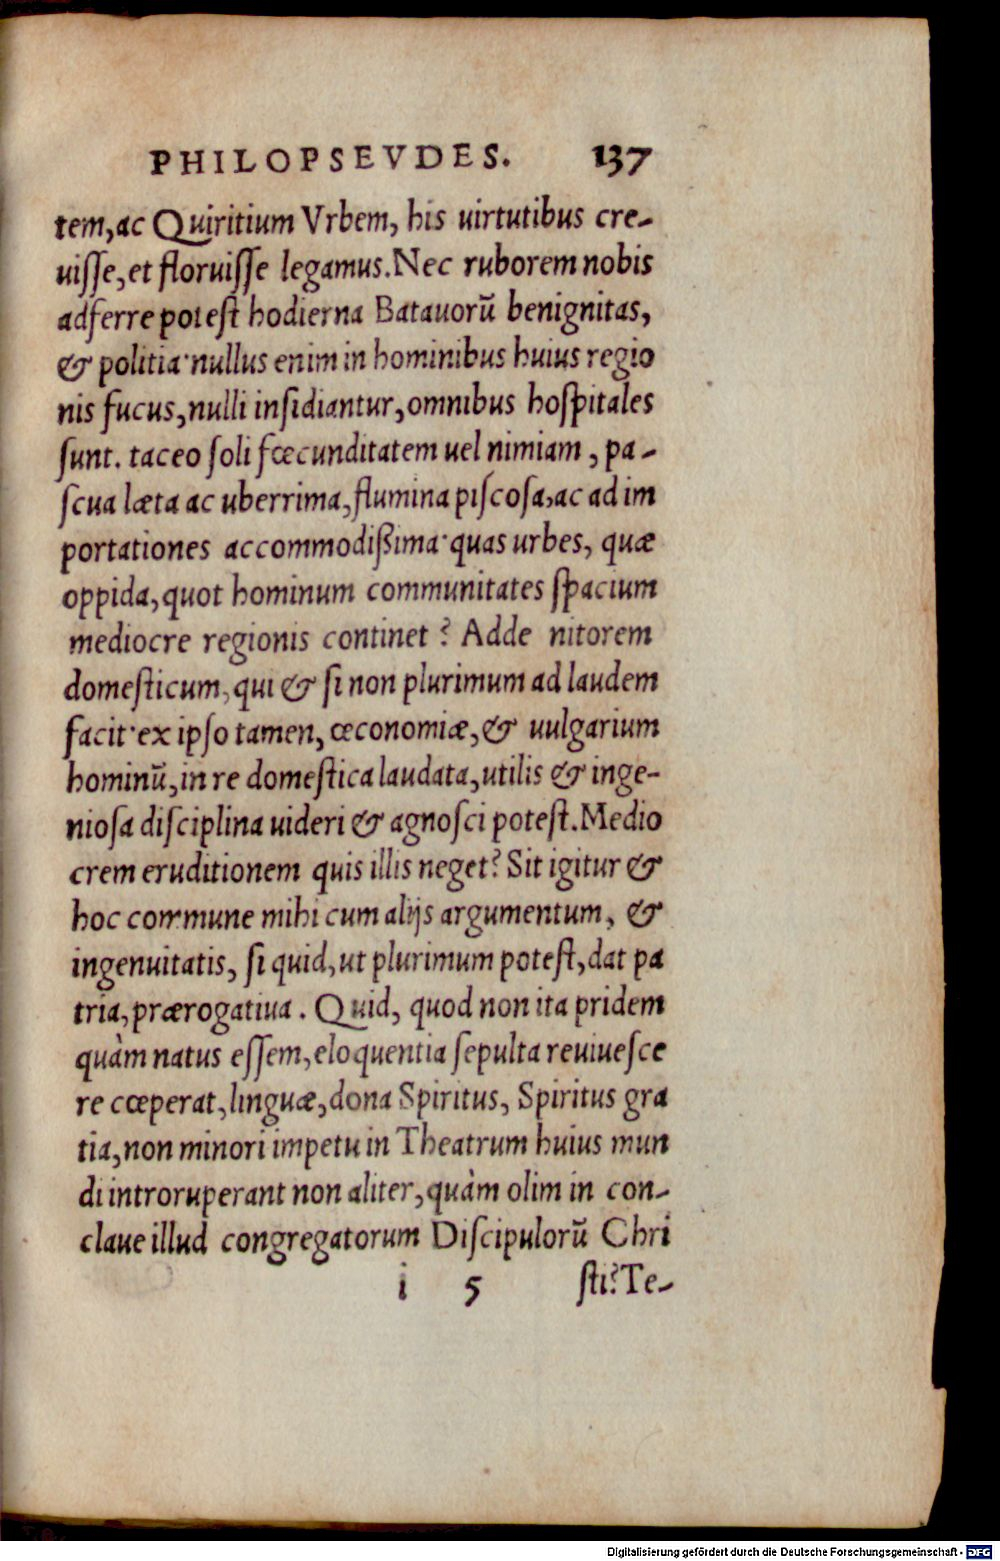 PHILOPSEVDES. 137
tem, ac Quiritium Vrbem, his uirtutibus cre-
uisse, et floruisse legamus. Nec ruborem nobis
adferre potest hodierna Batauorū benignitas,
& politia· nullus enim in hominibus huius regio
nis fucus, nulli insidiantur, omnibus hospitales
sunt. taceo soli fœcunditatem uel nimiam, pa-
scua læta ac uberrima, flumina piscosa, ac ad im
portationes accommodißima· quas urbes, quæ
oppida, quot hominum communitates spacium
mediocre regionis continet? Adde nitorem
domesticum, qui & si non plurimum ad laudem
facit· ex ipso tamen, œconomiæ, & uulgarium
hominū, in re domestica laudata, utilis & inge-
niosa disciplina uideri & agnosci potest. Medio
crem eruditionem quis illis neget? Sit igitur &
hoc commune mihi cum alijs argumentum, &
ingenuitatis, si quid, ut plurimum potest, dat pa
tria, prærogatiua. Quid, quod non ita pridem
quàm natus essem, eloquentia sepulta reuiuesce
re cœperat, linguæ, dona Spiritus, Spiritus gra
tia, non minori impetu in Theatrum huius mun
di introruperant non aliter, quàm olim in con-
claue illud congregatorum Discipulorū Chri
i 5 sti? Te-
Digitalisierung gefördert durch die Deutsche Forschungsgemeinschaft - DFG